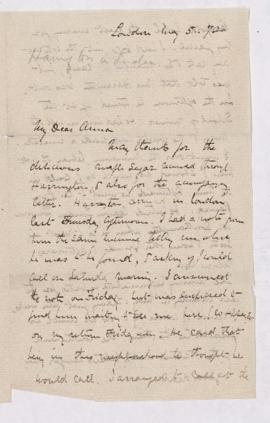 London Aug 5th 72
My Dear Anna
Many thanks for the
delicious maple sugar carried through
Harrington, & also for the accompanying
letter. Harrington arrived in London
last Thursday afternoon. I had a note from
him the same evening telling me where
he was to be found, & asking if I would
call on Saturday morning. I answered
the note on Friday but was surprised to
find him waiting to see me here,
on my return Friday eve. He said that
being in this neighborhood he thought he
would call. I arranged to call at the